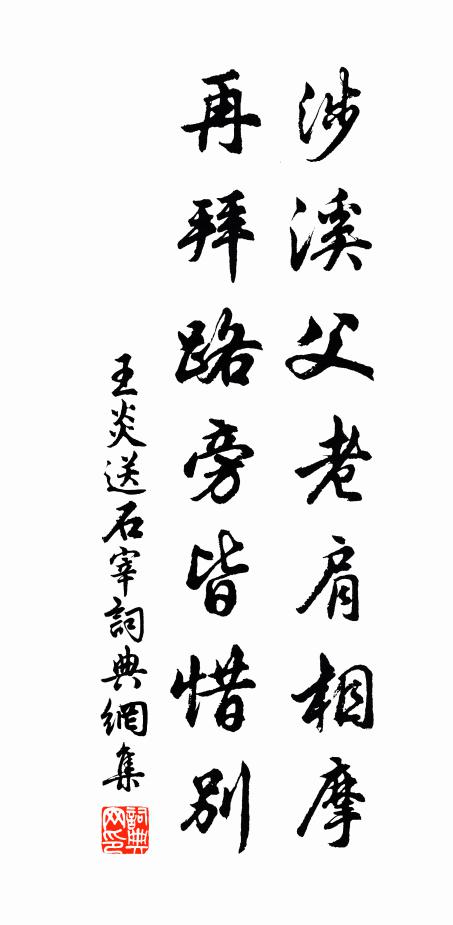 涉溪父老肩相摩
再拜路旁皆惜别
王炎送石宰詞典網集
詞典网印